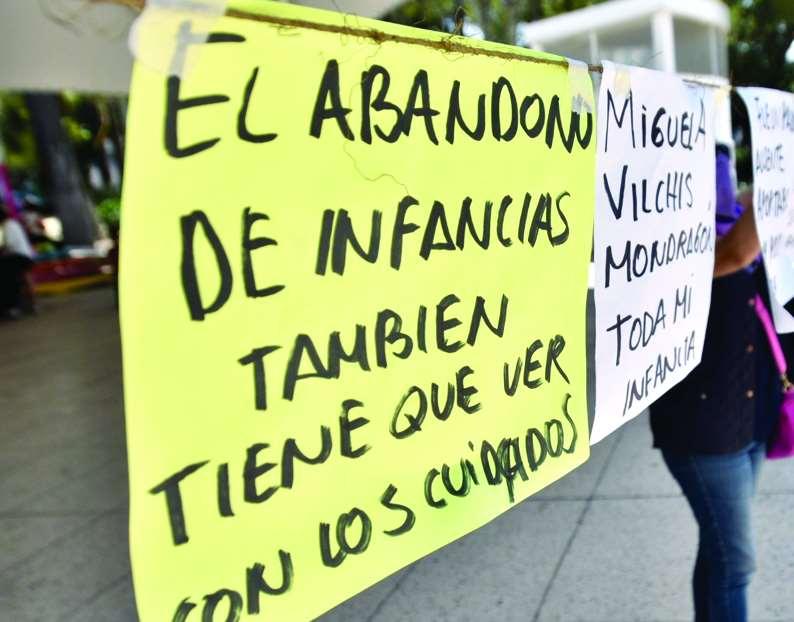 EL ABANDONO
DE INFANCIAS
TAMBIEN
TIENE QUE VER
CON LOS CUIDADOS
MIGUELA
VILCHIS
MONDRAGON
TODA MI
INFANCIA